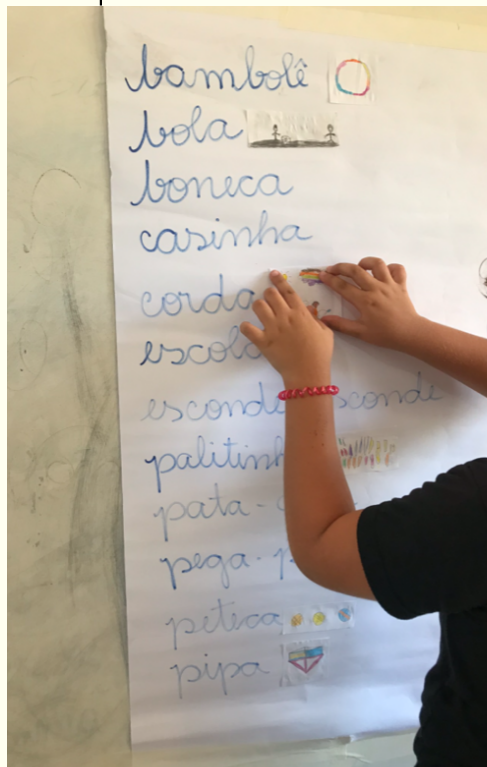 bambolê
bola
boneca
casinha
corda
escola
esconde esconde
palitinh
pata-
pega-p
peteca
pipa